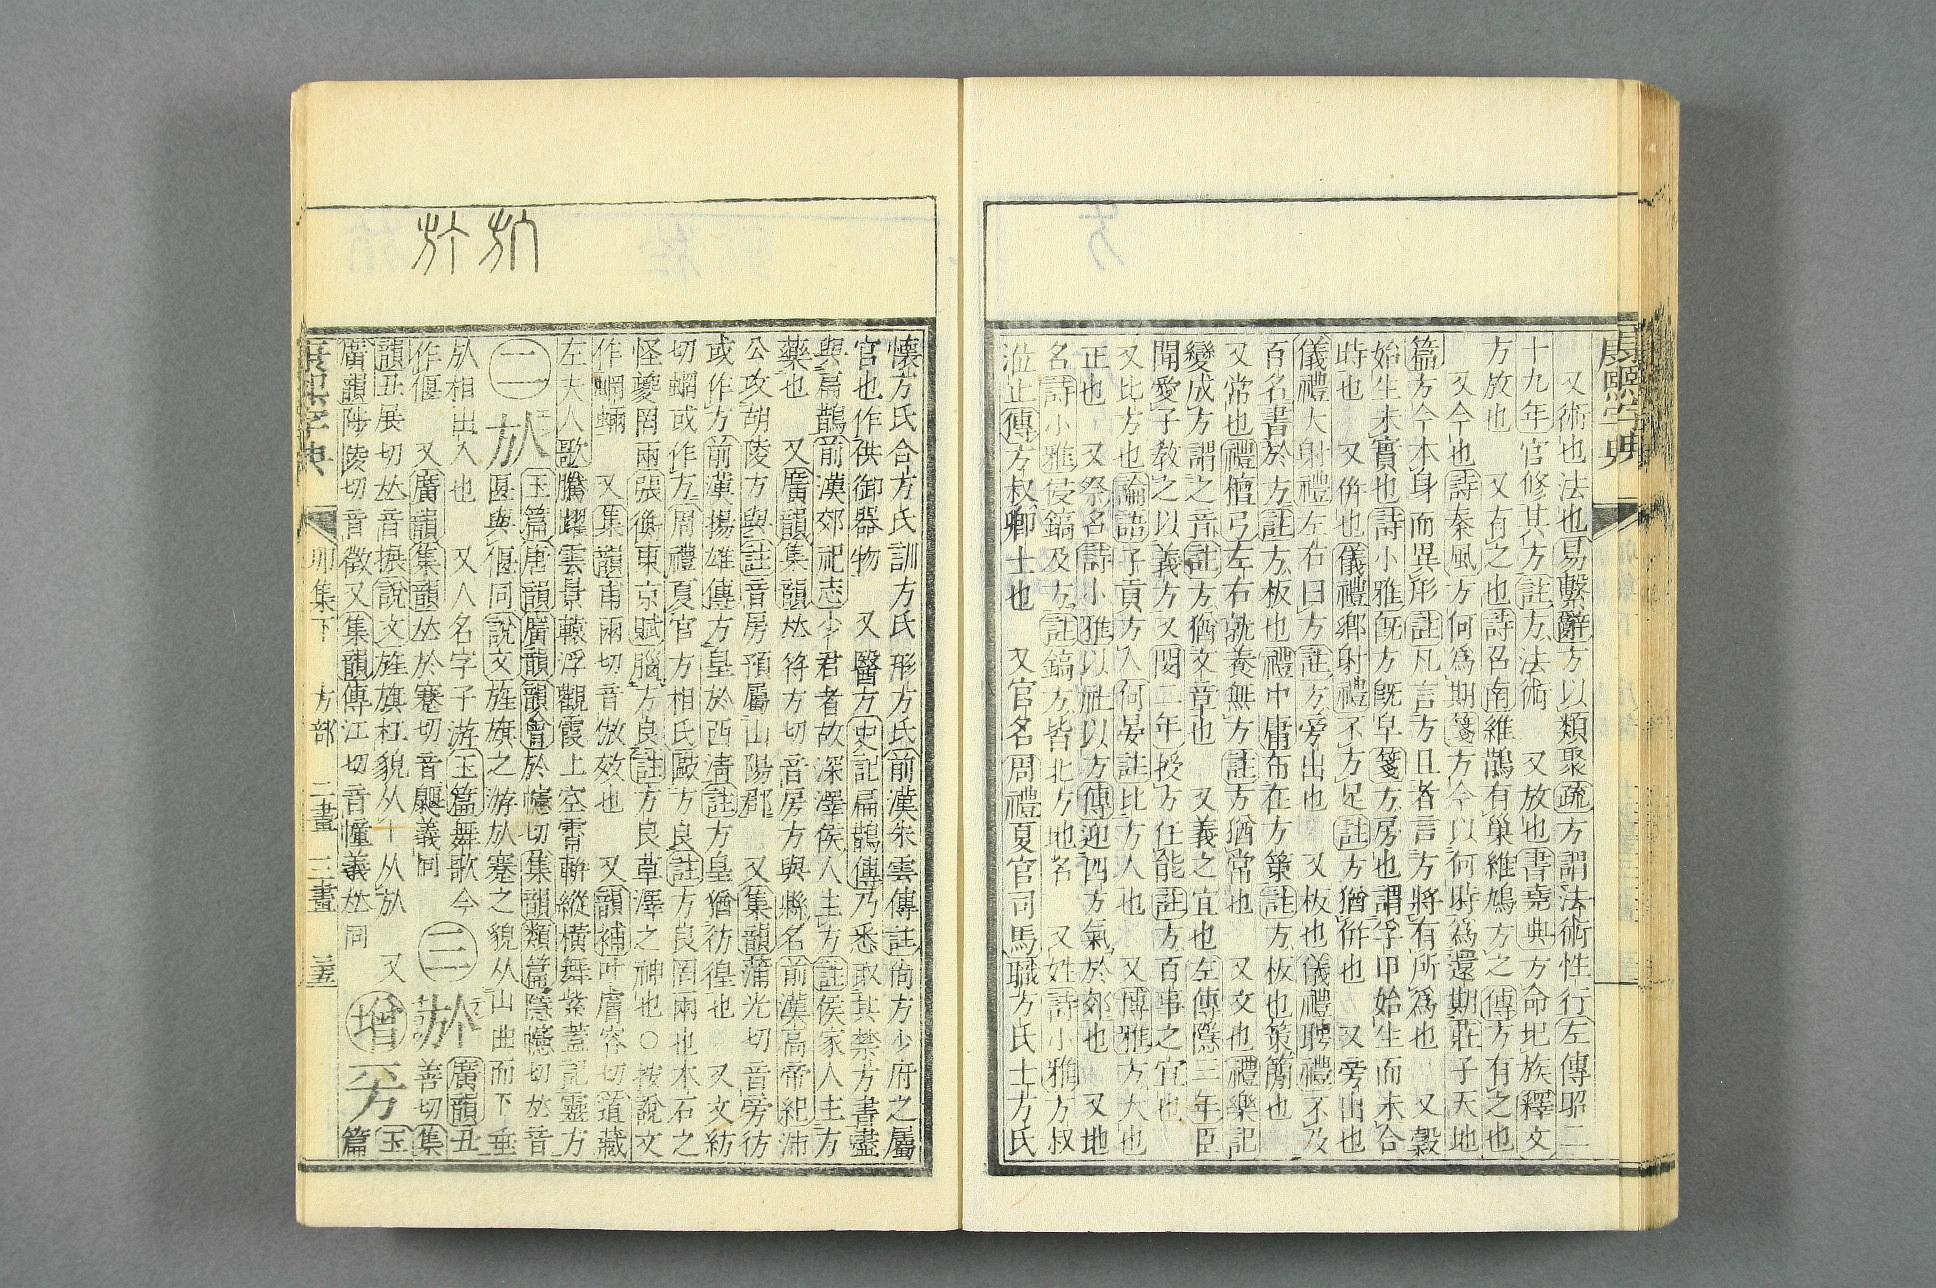 康熙字典
又術也法也易繫辭方以類聚疏方謂法術性行左傳昭二
十九年官修其方註方法術 又放也書堯典方命圮族釋文
方放也 又有之也詩召南維鵲有巢維鳩方之傳方有之也
又今也詩秦風方何爲期箋方今以何時爲還期莊子天地
篇方今本身而異形註凡言方且者言方將有所爲也 又穀
始生未實也詩小雅旣方旣皁箋方房也謂孚甲始生而未合
時也 又倂也儀禮鄉射禮不方足註方猶倂也 又旁出也
儀禮大射禮左右曰方註方旁出也 又板也儀禮聘禮不及
百名書於方註方板也禮中庸布在方策註方板也策簡也
又常也禮檀弓左右就養無方註方猶常也 又文也禮樂記
變成方謂之音註方猶文章也 又義之宜也左傳隱三年臣
聞愛子敎之以義方又閔二年授方任能註方百事之宜也
又比方也論語子貢方人何晏註比方人也 又博雅方大也
正也 又祭名詩小雅以社以方傳迎四方氣於郊也 又地
名詩小雅侵鎬及方註鎬方皆北方地名 又姓詩小雅方叔
涖止傳方叔卿士也 又官名周禮夏官司馬職方氏士方氏
懷方氏合方氏訓方氏形方氏前漢朱雲傳註尙方少府之屬
官也作供御器物 又醫方史記扁鵲傳乃悉取其禁方書盡
與扁鵲前漢郊祀志少君者故深澤侯人主方註侯家人主方
藥也 又廣韻集韻𠀤符方切音房方與縣名前漢高帝紀沛
公攻胡陵方與註音房預屬山陽郡 又集韻蒲光切音旁彷
或作方前漢揚雄傳方皇於西淸註方皇猶彷徨也 又文紡
切蝄或作方周禮夏官方相氏毆方良註方良罔兩也木石之
怪夔罔兩張衡東京賦腦方良註方良草澤之神也○按說文
作蝄蜽 又集韻甫兩切音倣效也 又韻補叶膚容切道藏
左夫人歌騰躍雲景轅浮觀霞上空霄軿縱橫舞紫蓋記靈方
二 㫃 玉篇唐韻廣韻韻會於幰切集韻類篇隱幰切𠀤音
匽與偃同說文旌旗之游㫃蹇之貌从屮曲而下垂
㫃相出入也 又人名字子游玉篇舞歌今
作偃 又廣韻集韻𠀤於蹇切音鶠義同 三 㫄 廣韻丑
善切集
韻丑展切𠀤音搌說文旌旗杠貌从丨从㫃 又
廣韻陟陵切音徵又集韻傳江切音幢義𠀤同 增 㫄 玉
篇
康熙字典 卯集下 方部 二畫 三畫